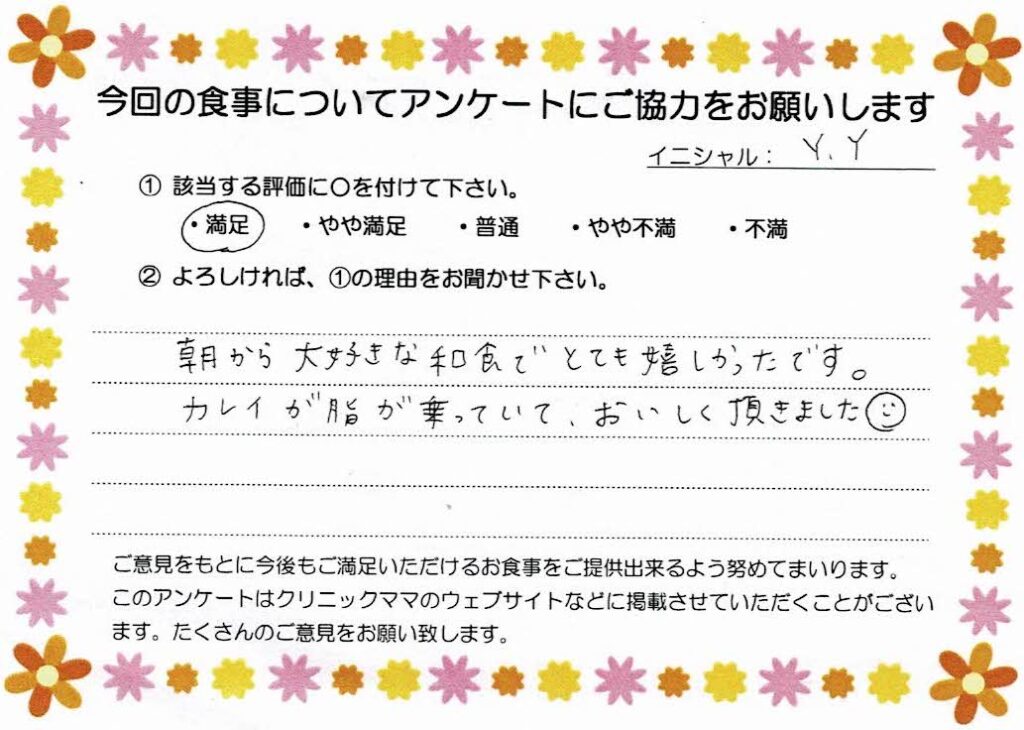 今回の食事についてアンケートにご協力をお願いします
イニシャル： Y.Y
① 該当する評価に〇を付けて下さい。
・満足 ・やや満足 ・普通 ・やや不満 ・不満
② よろしければ、①の理由をお聞かせ下さい。
朝から大好きな和食でとても嬉しかったです。
カレイが脂が乗っていて、おいしく頂きました
ご意見をもとに今後もご満足いただけるお食事をご提供出来るよう努めてまいります。
このアンケートはクリニックママのウェブサイトなどに掲載させていただくことがござい
ます。たくさんのご意見をお願い致します。